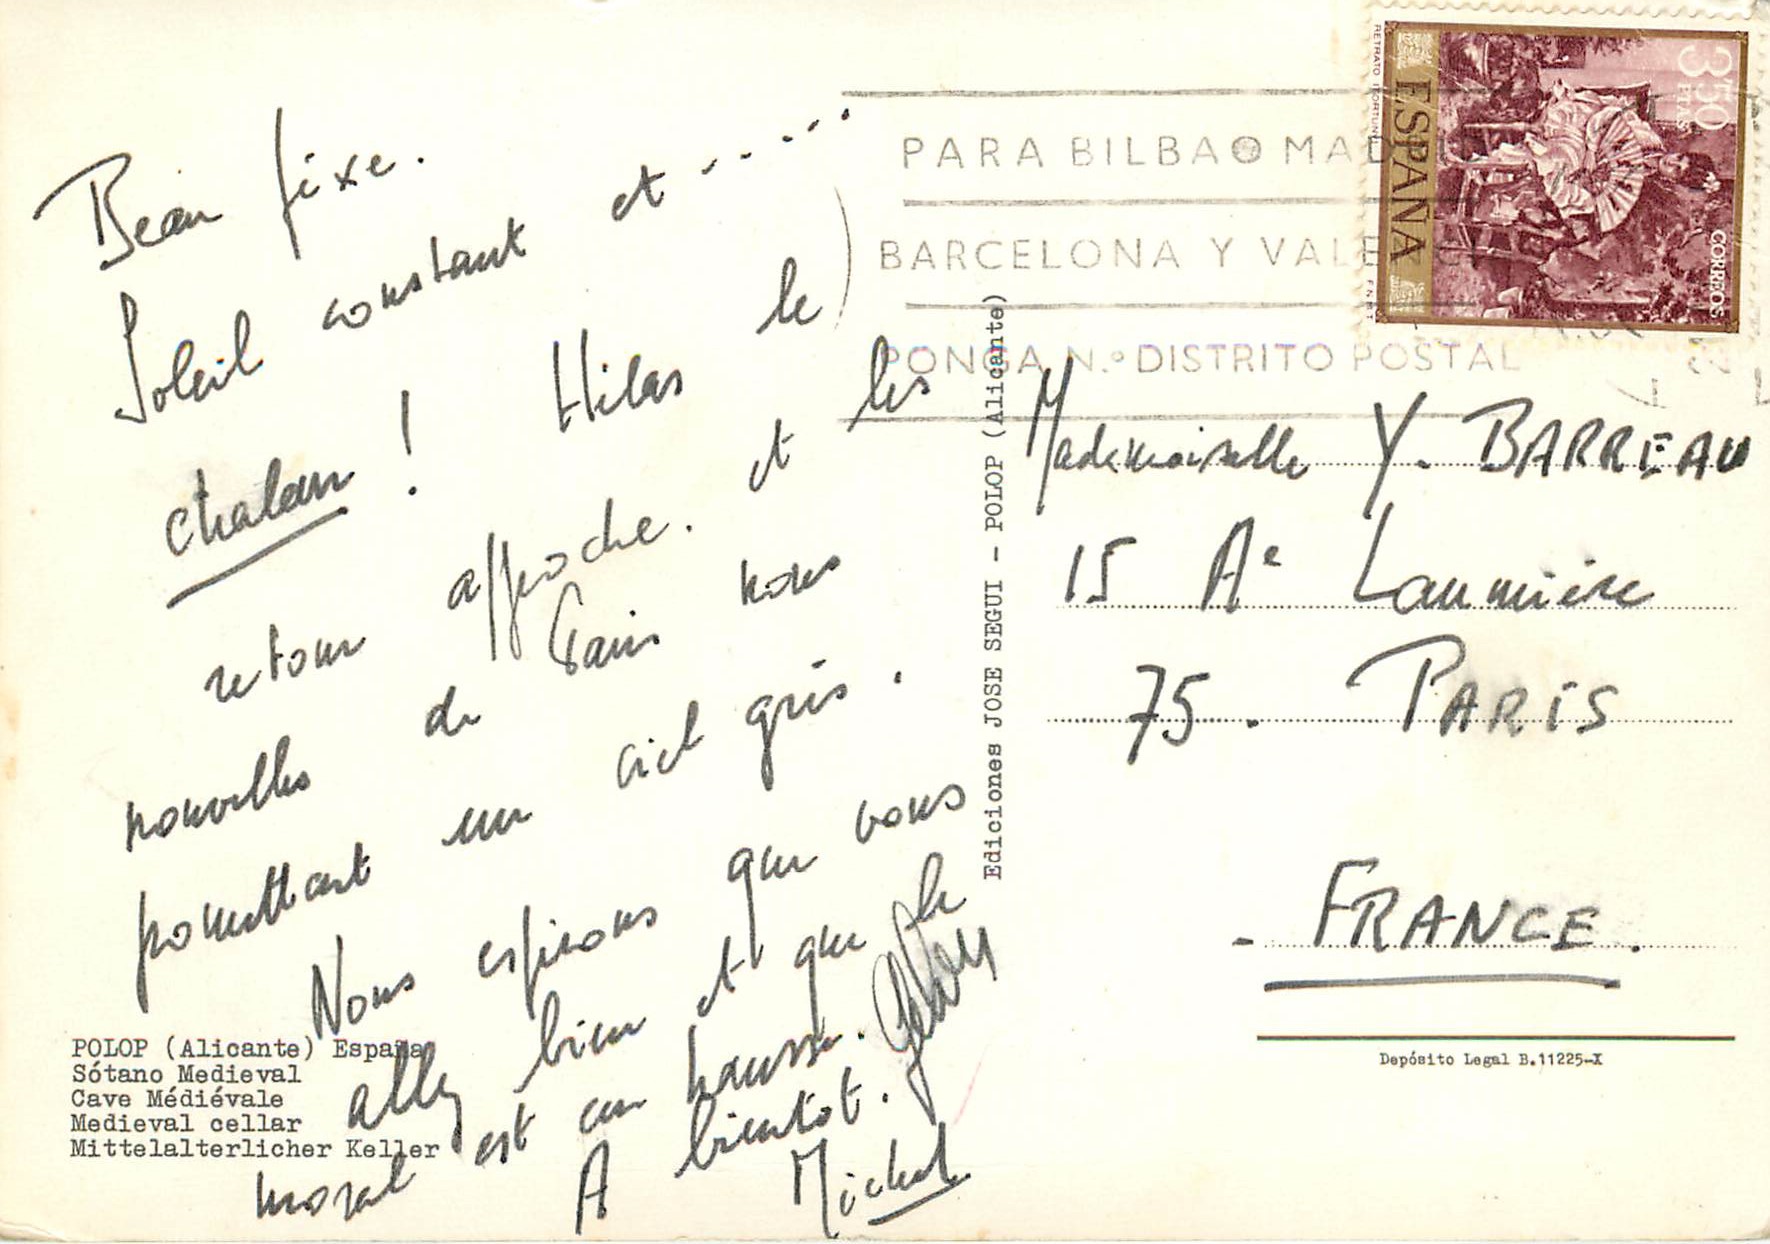 Beau fixe.
Soleil constant et .....
chaleur ! Hélas le
retour approche. et les
nouvelles de Paris nous
promettent un ciel gris.
Nous espérons que vous
allez bien et que le
moral est en hausse.
A bientôt.
Michel
POLOP (Alicante) España
Sótano Medieval
Cave Médiévale
Medieval cellar
Mittelalterlicher Keller
Ediciones JOSE SEGUI - POLOP (Alicante)
PARA BILBAO MAD
BARCELONA Y VALE
PONGA N.º DISTRITO POSTAL
3'50 PTAS
CORREOS
ESPAÑA
RETRATO
Mademoiselle Y. BARREAU
15 Ae Laumière
75. PARIS
- FRANCE.
Depósito Legal B.11225-X